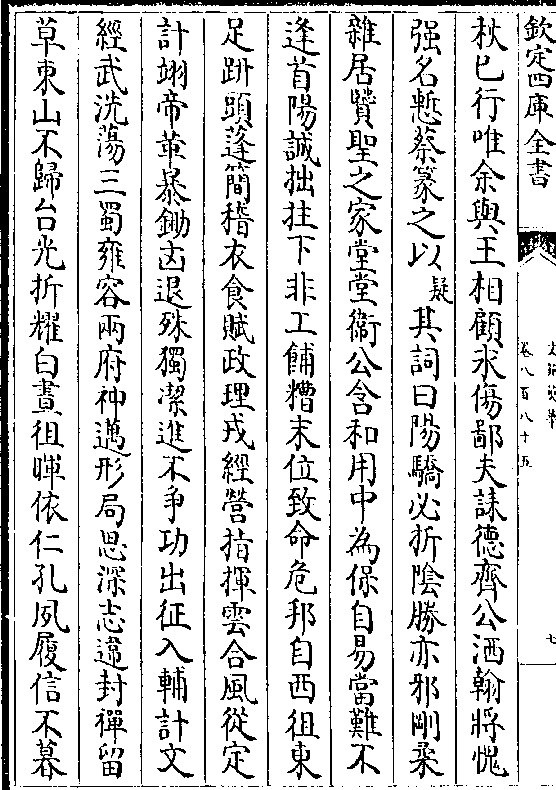 欽定四庫全書
文苑英華
卷八百八十五
七
杖已行唯余與王相顧永傷鄙夫誄德齊公洒翰將愧
强名慙蔡篆之以疑其詞曰陽驕必折陰勝亦邪剛柔
雜居贊聖之家堂堂衞公含和用中為保自易當難不
逢首陽誠拙柱下非工餔糟末位致命危邦自西徂東
足趼頭蓬簡稽衣食賦政理戎經營指揮雲合風從定
計翊帝革暴鋤凶退殊獨潔進不爭功出征入輔計文
經武洗蕩三蜀雍容兩府神邁形局思深志違封禪留
草東山不歸台光折耀白晝徂暉依仁孔夙履信不暮